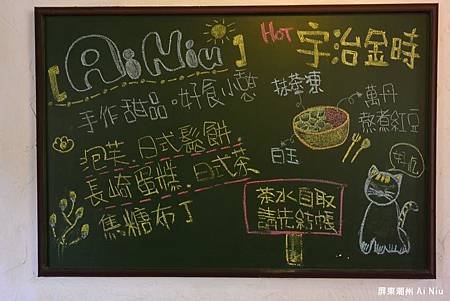 Ai Niu
手作甜品。好食小惷
泡芙. 日式鬆餅.
長崎蛋糕. 日式茶
焦糖布丁
HOT 宇治金時
抹茶凍
萬丹
熬煮紅豆
白玉
茶水自取
請先結帳
屏東潮州 Ai Niu